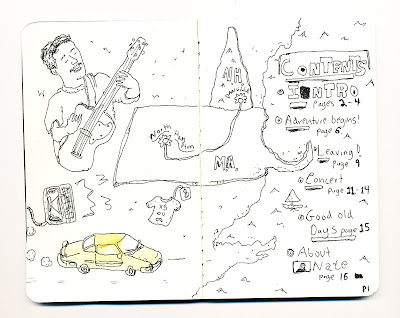 North
Ham
pton
NH
MA.
CONTENTS
INTRO
pages 2-4
Adventure begins!
page 6
Leaving!
page 9
Concert
page 11-14
Good old
Days page 15
About
Nate
page 16
P1